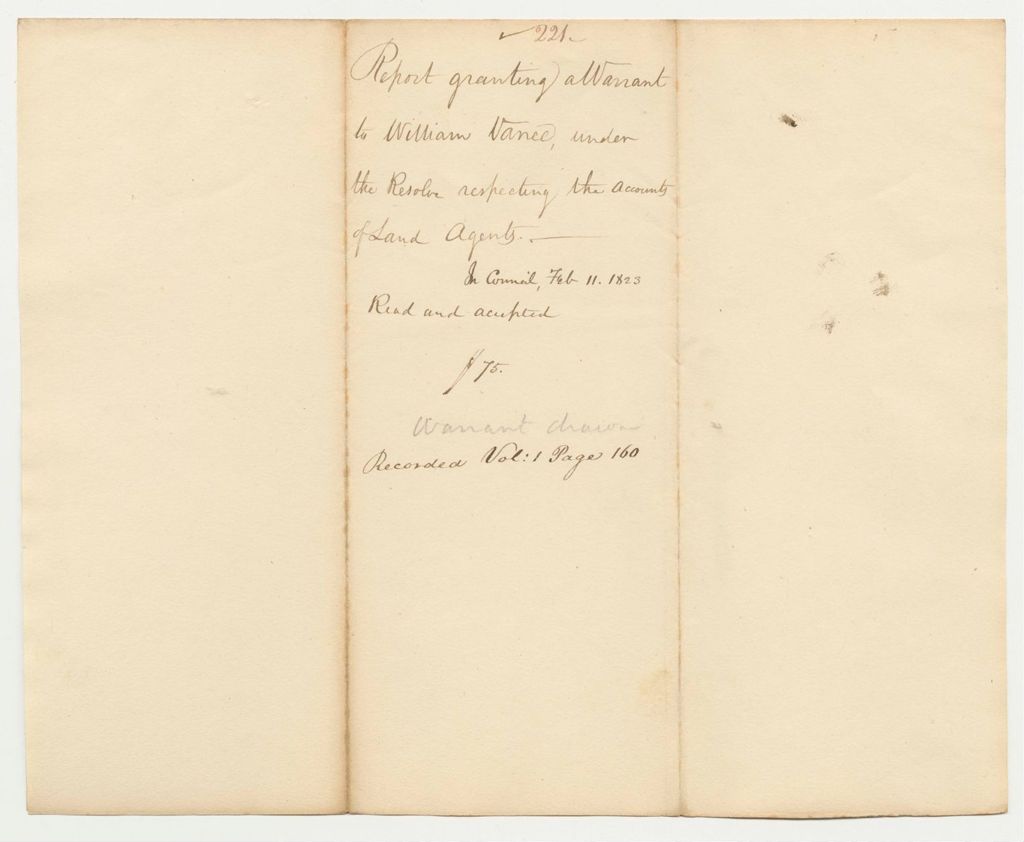 ✓ 221.
Report granting a Warrant
to William Vance, under
the Resolve respecting the accounts
of Land Agents. —
In Council, Feb 11. 1823
Read and accepted
$75.
Warrant drawn
Recorded Vol: 1 Page 160